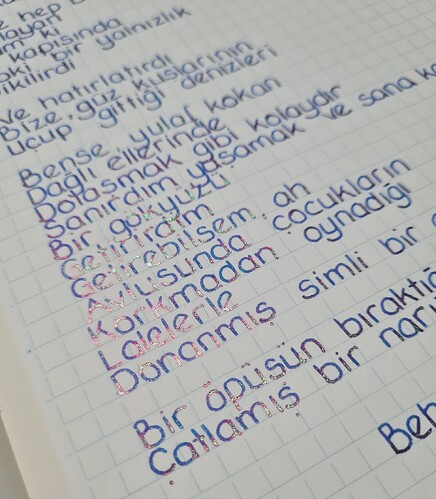 hep
ki
kapısında
bir yalnızlık
dikilirdi
Ve hatırlatırdı
Bize, güz kuşlarının
Uçup gittiği denizleri
Bense, yulaf kokan
Dağlı ellerinde
Dolaşmak gibi kolaydır
Sanırdım yaşamak ve sana
Bir gökyüzü
Getirirdim
Getirebilsem, ah
Avlusunda çocukların
Korkmadan oynadığı
Lalelerle
Donanmış simli bir
Bir öpüşün bıraktığı
Çatlamış bir